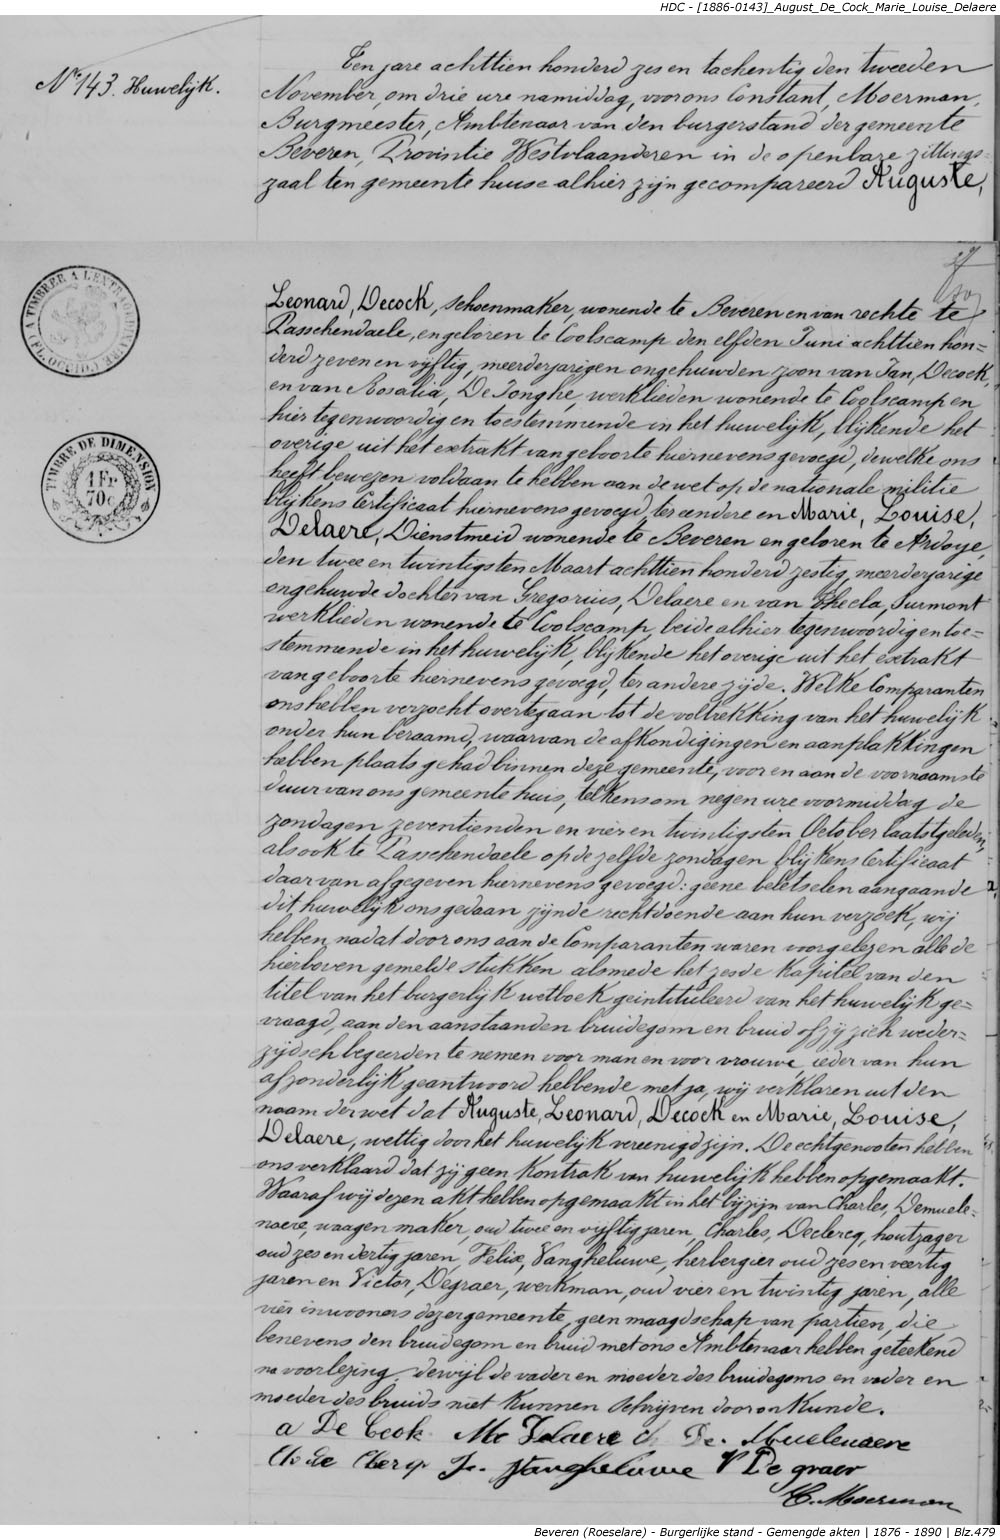 HDC - [1886-0143]_August_De_Cock_Marie_Louise_Delaere
Nº 143. Huwelijk.
Ten jare achttien honderd zes en tachentig den tweeden
November, om drie ure namiddag, voor ons Constant, Moerman,
Burgmeester, Ambtenaar van den burgerstand der gemeente
Beveren, Provintie Westvlaanderen in de openbare zittings=
zaal ten gemeente huise alhier zijn gecompareerd Auguste,
Leonard, Decock, schoenmaker, wonende te Beveren en van rechte te
Passchendaele, en geboren te Coolscamp den elfden Juni achttien hon=
derd zeven en vijftig, meerderjarigen ongehuwden zoon van Jan, Decock,
en van Rosalia, De Jonghe, werklieden wonende te Coolscamp en
hier tegenwoordig en toestemmende in het huwelijk, blijkende het
overige uit het extrakt van geboorte hiernevens gevoegd, dewelke ons
heeft bewezen voldaan te hebben aan de wet op de nationale militie
blijkens Certificaat hiernevens gevoegd, ter eendere en Marie, Louise,
Delaere, Dienstmeid wonende te Beveren en geboren te Ardoye,
den twee en twintigsten Maart achttien honderd zestig, meerderjarige
ongehuwde dochter van Gregorius, Delaere en van Thecla, Surmont
werklieden wonende te Coolscamp, beide alhier tegenwoordig en toe=
stemmende in het huwelijk, blijkende het overige uit het extrakt
van geboorte hiernevens gevoegd, ter andere zijde. Welke Comparanten
ons hebben verzocht overtegaan tot de voltrekking van het huwelijk
onder hun beraamd, waarvan de afkondigingen en aanplakkingen
hebben plaats gehad binnen deze gemeente, voor en aan de voornaamste
duur van ons gemeente huis, telkens om negen ure voormiddag de
zondagen zeventienden en vier en twintigsten October laatstgeleden,
als ook te Passchendaele op dezelfde zondagen blijkens Certificaat
daar van afgegeven hiernevens gevoegd: geene beletselen aangaande
dit huwelijk ons gedaan zijnde rechtdoende aan hun verzoek, wij
hebben nadat door ons aan de Comparanten waren voorgelezen alle de
hierboven gemelde stukken alsmede het zesde Kapitel van den
titel van het burgerlijk wetboek geintituleerd van het huwelijk ge=
vraagd, aan den aanstaanden bruidegom en bruid of zij zich weder=
zijdsch begeerden te nemen voor man en voor vrouwe, ieder van hun
afzonderlijk geantwoord hebbende met ja, wij verklaren uit den
naam der wet dat Auguste, Leonard, Decock en Marie, Louise,
Delaere, wettig door het huwelijk vereenigd zijn. De echtgenooten hebben
ons verklaard dat zij geen Kontrak van huwelijk hebben opgemaakt.
Waaraf wij dezen akt hebben opgemaakt in het bijzijn van Charles, Demuele=
naere, waagen maker, oud twee en vijftig jaren, Charles, Declercq, houtzager
oud zes en dertig jaren, Felix, Vangheluwe, herbergier oud zes en veertig
jaren en Victor, Degraer, werkman, oud vier en twintig jaren, alle
vier inwooners dezer gemeente, geen maagdschap van partien, die
benevens den bruidegom en bruid met ons Ambtenaar hebben geteekend
na voorlezing, dewijl de vader en moeder des bruidegoms en vader en
moeder des bruids niet Kunnen schrijven door onkunde.
a De Cock Me Delaere ch De. Muelenaere
Ch De Clercq Fe. Vangheluwe V De graer
C. Moerman
TIMBRE DE DIMENSION
1 Fr
70c
Beveren (Roeselare) - Burgerlijke stand - Gemengde akten | 1876 - 1890 | Blz.479